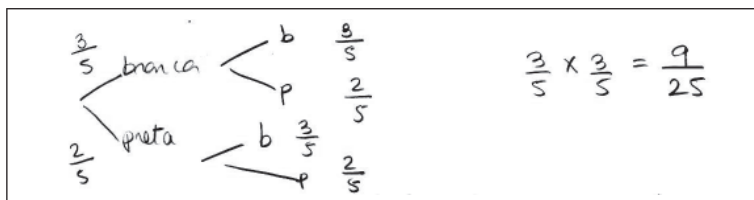 3/5 branca b 3/5
p 2/5
2/5 preta b 3/5
p 2/5
3/5 × 3/5 = 9/25